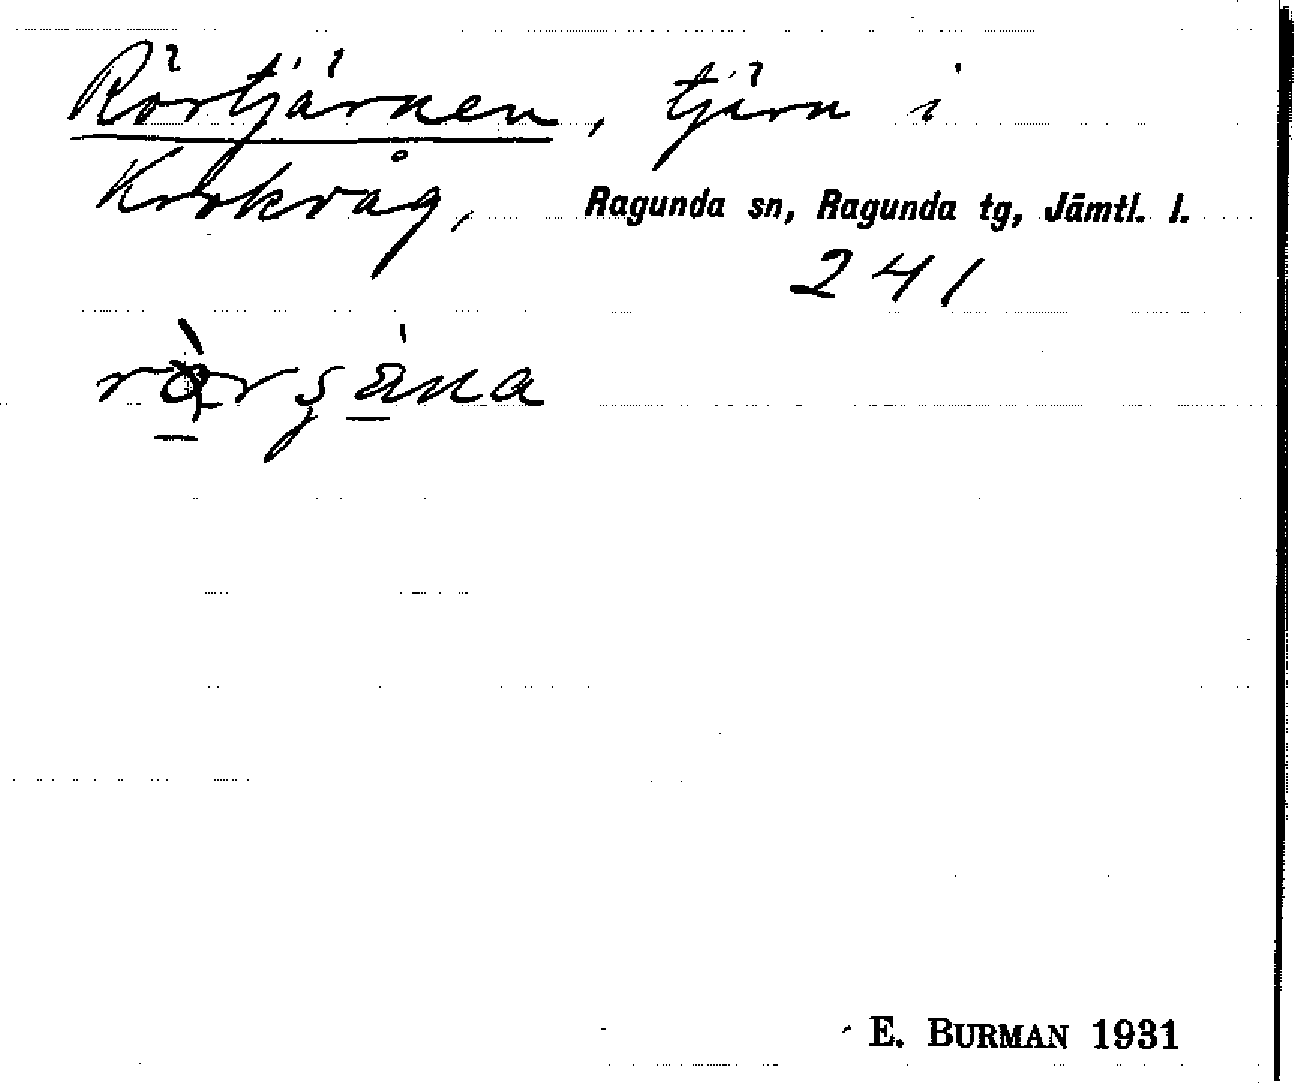 Rörtjärnen, tjärn i
Krokvåg, Ragunda sn, Ragunda tg, Jämtl. l.
241
E. BURMAN 1931